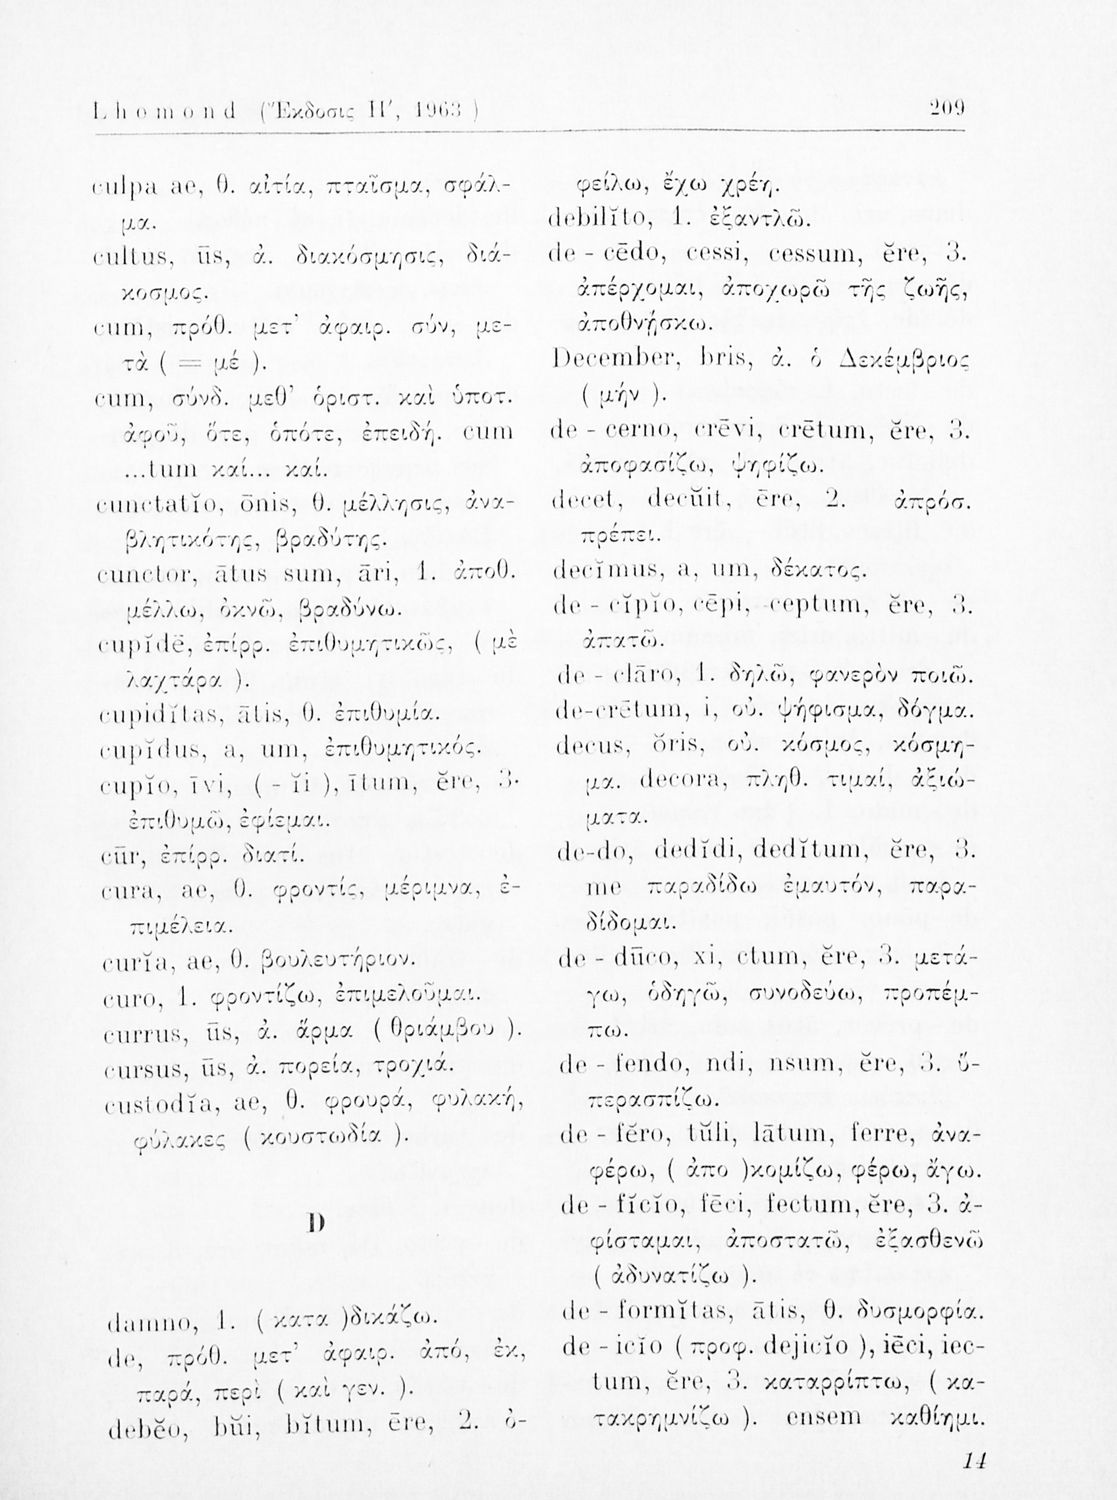 Lhomond (Ἔκδοσις Η′, 1963 )
209
culpa ae, θ. αἰτία, πταῖσμα, σφάλ-
μα.
cultus, ūs, ἀ. διακόσμησις, διά-
κοσμος.
cum, πρόθ. μετ᾽ ἀφαιρ. σύν, με-
τὰ ( = μέ ).
cum, σύνδ. μεθ᾽ ὁριστ. καὶ ὑποτ.
ἀφοῦ, ὅτε, ὁπότε, ἐπειδή. cum
...tum καί... καί.
cunctatĭo, ōnis, θ. μέλλησις, ἀνα-
βλητικότης, βραδύτης.
cunctor, ātus sum, āri, 1. ἀποθ.
μέλλω, ὀκνῶ, βραδύνω.
cupĭdē, ἐπίρρ. ἐπιθυμητικῶς, ( μὲ
λαχτάρα ).
cupidĭtas, ātis, θ. ἐπιθυμία.
cupĭdus, a, um, ἐπιθυμητικός.
cupĭo, īvi, ( - ĭi ), ītum, ĕre, 3·
ἐπιθυμῶ, ἐφίεμαι.
cūr, ἐπίρρ. διατί.
cura, ae, θ. φροντίς, μέριμνα, ἐ-
πιμέλεια.
curĭa, ae, θ. βουλευτήριον.
curo, 1. φροντίζω, ἐπιμελοῦμαι.
currus, ūs, ἀ. ἅρμα ( θριάμβου ).
cursus, ūs, ἀ. πορεία, τροχιά.
custodĭa, ae, θ. φρουρά, φυλακή,
φύλακες ( κουστωδία ).
D
damno, 1. ( κατα )δικάζω.
de, πρόθ. μετ᾽ ἀφαιρ. ἀπό, ἐκ,
παρά, περὶ ( καὶ γεν. ).
debĕo, bŭi, bĭtum, ēre, 2. ὀ-
φείλω, ἔχω χρέη.
debilĭto, 1. ἐξαντλῶ.
de - cēdo, cessi, cessum, ĕre, 3.
ἀπέρχομαι, ἀποχωρῶ τῆς ζωῆς,
ἀποθνήσκω.
December, bris, ἀ. ὁ Δεκέμβριος
( μήν ).
de - cerno, crēvi, crētum, ĕre, 3.
ἀποφασίζω, ψηφίζω.
decet, decŭit, ēre, 2. ἀπρόσ.
πρέπει.
decĭmus, a, um, δέκατος.
de - cĭpĭo, cēpi, -ceptum, ĕre, 3.
ἀπατῶ.
de - clāro, 1. δηλῶ, φανερὸν ποιῶ.
de-crētum, i, οὐ. ψήφισμα, δόγμα.
decus, ŏris, οὐ. κόσμος, κόσμη-
μα. decora, πληθ. τιμαί, ἀξιώ-
ματα.
de-do, dedĭdi, dedĭtum, ĕre, 3.
me παραδίδω ἐμαυτόν, παρα-
δίδομαι.
de - dūco, xi, ctum, ĕre, 3. μετά-
γω, ὁδηγῶ, συνοδεύω, προπέμ-
πω.
de - fendo, ndi, nsum, ĕre, 3. ὑ-
περασπίζω.
de - fĕro, tŭli, lātum, ferre, ἀνα-
φέρω, ( ἀπο )κομίζω, φέρω, ἄγω.
de - fĭcĭo, fēci, fectum, ĕre, 3. ἀ-
φίσταμαι, ἀποστατῶ, ἐξασθενῶ
( ἀδυνατίζω ).
de - formĭtas, ātis, θ. δυσμορφία.
de - icĭo ( προφ. dejicĭo ), iēci, iec-
tum, ĕre, 3. καταρρίπτω, ( κα-
τακρημνίζω ). ensem καθίημι.
14